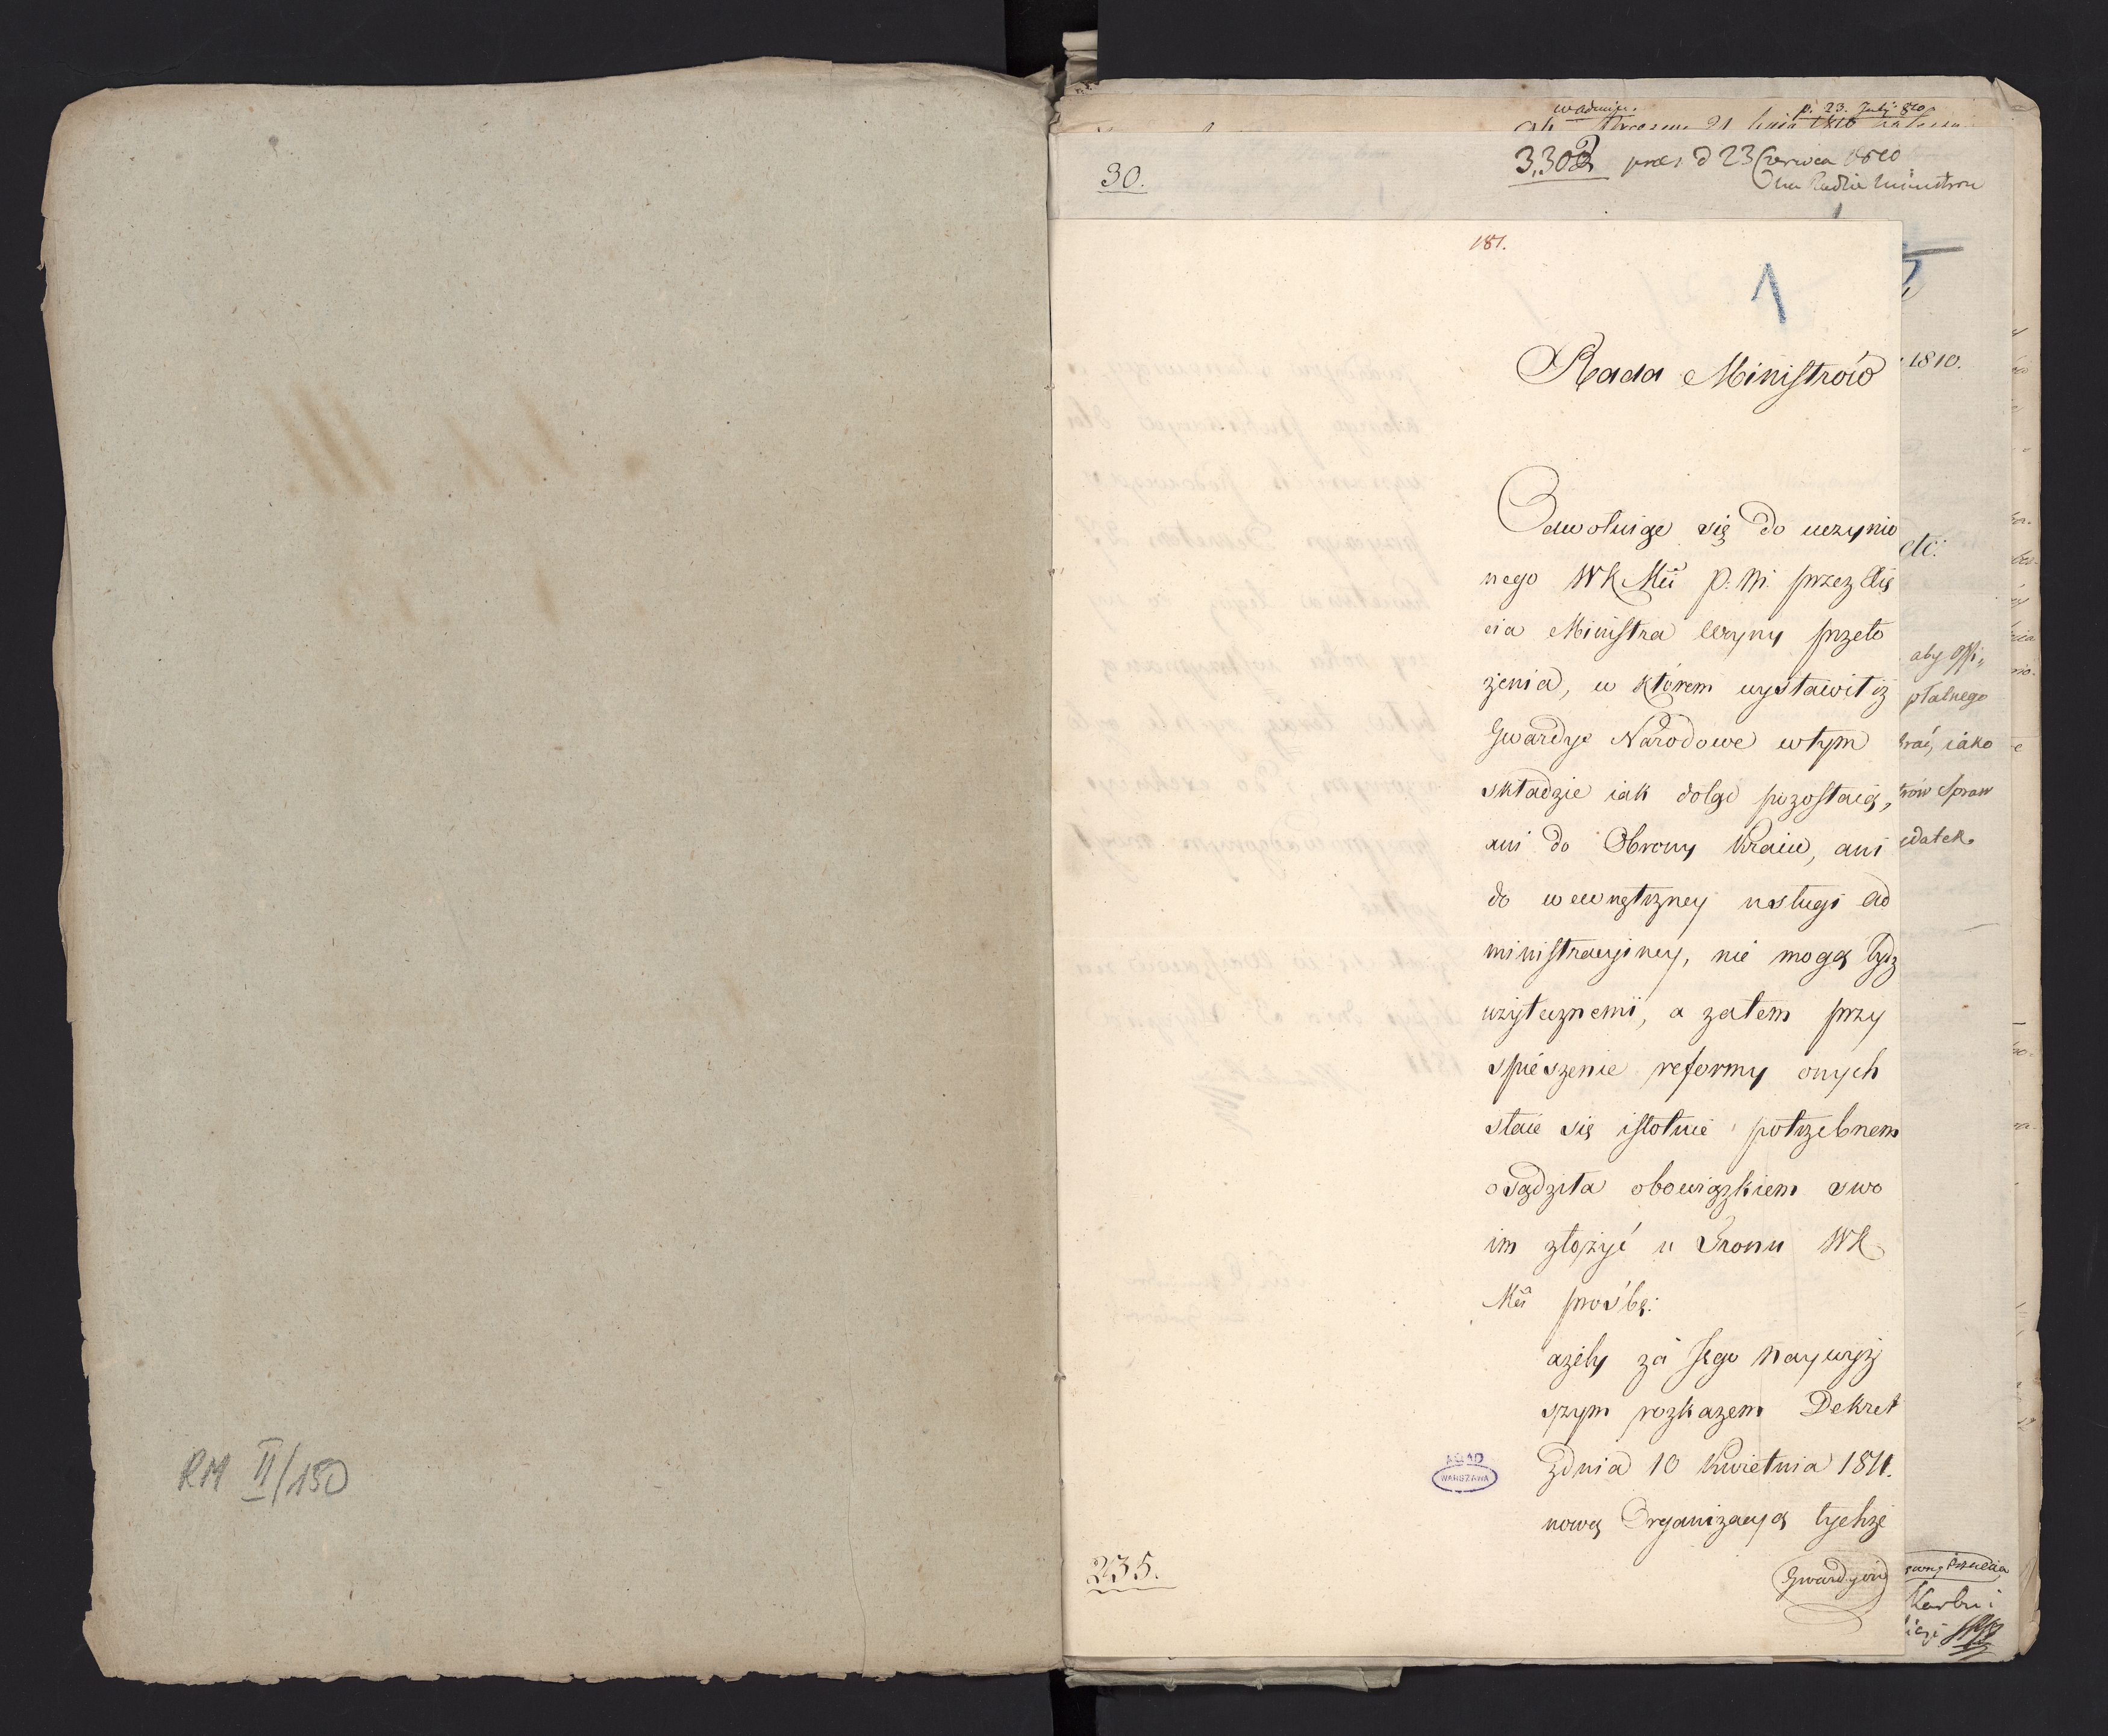 p. 23. July 810
30.
3,302 pres d 23 Czerwca 1810
na Radzie Ministrow
181.
1
Rada Ministrów
1810.
Odwołuiąc się do uczynio
etc:
nego WKMći P: M: przez Xię
cia Ministra Woyny przeło
żenia, w którem wystawił iż
aby Offi„
płalnego
Gwardye Narodowe w tym
brać, iako
składzie iak dotąd pozostaią,
trów Spraw
ani do Obrony Kraiu, ani
datek
do wewnętrzney usługi ad
ministracyiney, nie mogą bydź
użytecznemi, a zatem przy
spieszenie reformy onych
staie się istotnie potrzebnem
osądziła obowiązkiem swo
im złożyć u Tronu WK
Mći prośbę:
ażeby za Jego Naywyż
szym rozkazem Dekret
z dnia 10 Kwietnia 1811.
nową Organizacyą tychże
Gwardyów
RM II/150
AGAD
WARSZAWA
235.
Skarbu i